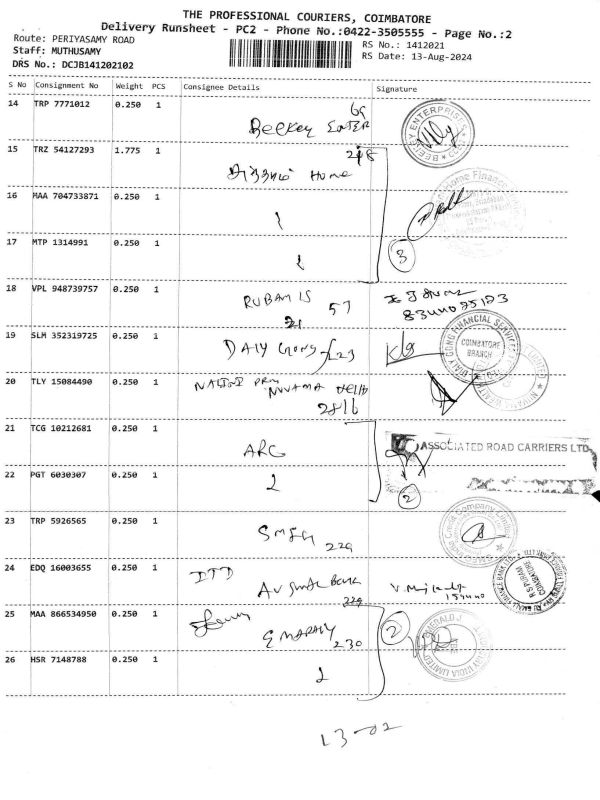 THE PROFESSIONAL COURIERS, COIMBATORE
Delivery Runsheet - PC2 - Phone No.:0422-3505555 - Page No.:2
Route: PERIYASAMY ROAD
Staff: MUTHUSAMY
DRS No.: DCJB141202102
RS No.: 1412021
RS Date: 13-Aug-2024
S No Consignment No Weight PCS Consignee Details Signature
14 TRP 7771012 0.250 1
69
15 TRZ 54127293 1.775 1
Home
16 MAA 704733871 0.250 1
17 MTP 1314991 0.250 1
3
18 VPL 948739757 0.250 1
RUBAM IS 57
21
19 SLM 352319725 0.250 1
DAIY GONG 223
COIMBATORE
BRANCH
20 TLY 15084490 0.250 1
NUVAMA
2816
21 TCG 10212681 0.250 1
ARG
ASSOCIATED ROAD CARRIERS LTD
22 PGT 6030307 0.250 1
2
2
23 TRP 5926565 0.250 1
SMFG 229
24 EDQ 16003655 0.250 1
229
R S PURAM
COIMBATORE
25 MAA 866534950 0.250 1
230
2
26 HSR 7148788 0.250 1
2
13-02